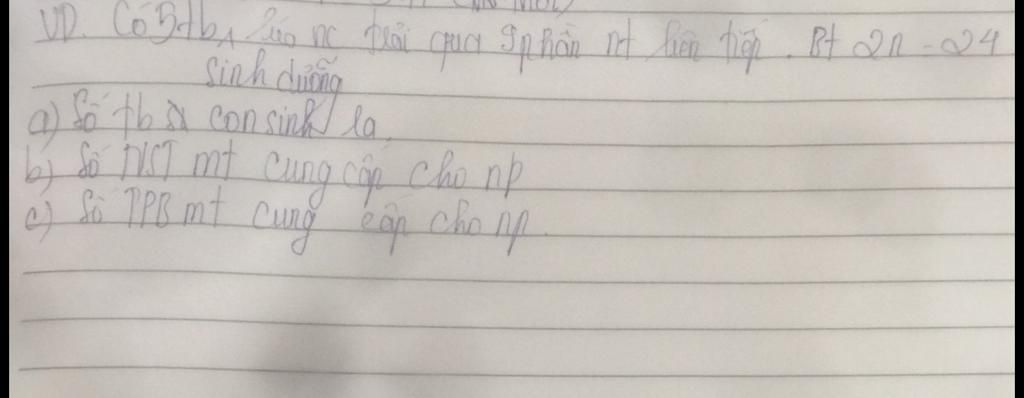 VD. Có 5 tb lúa nc trải qua 9 phân nt liên tiếp. Bt 2n = 24
sinh dưỡng
a) Số tb con sinh ra
b) Số NST mt cung cấp cho np
c) Số NST mt cung cấp cho np.